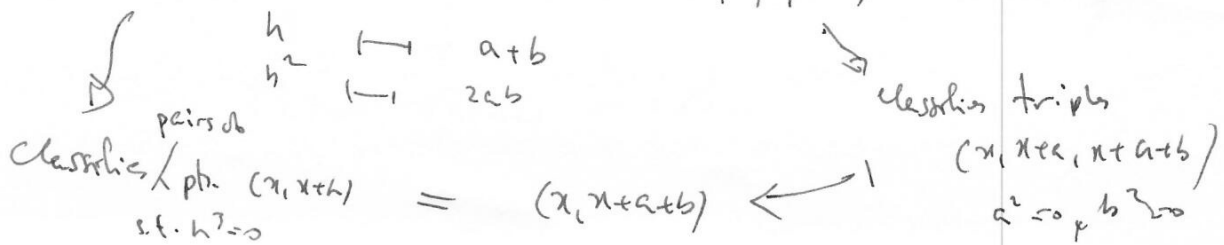 h ↦ a+b
h² ↦ 2ab
classifies triples
(x, x+a, x+a+b)
a²=0, b²=0
classifies pairs of pts. (x, x+h) = (x, x+a+b)
s.t. h³=0